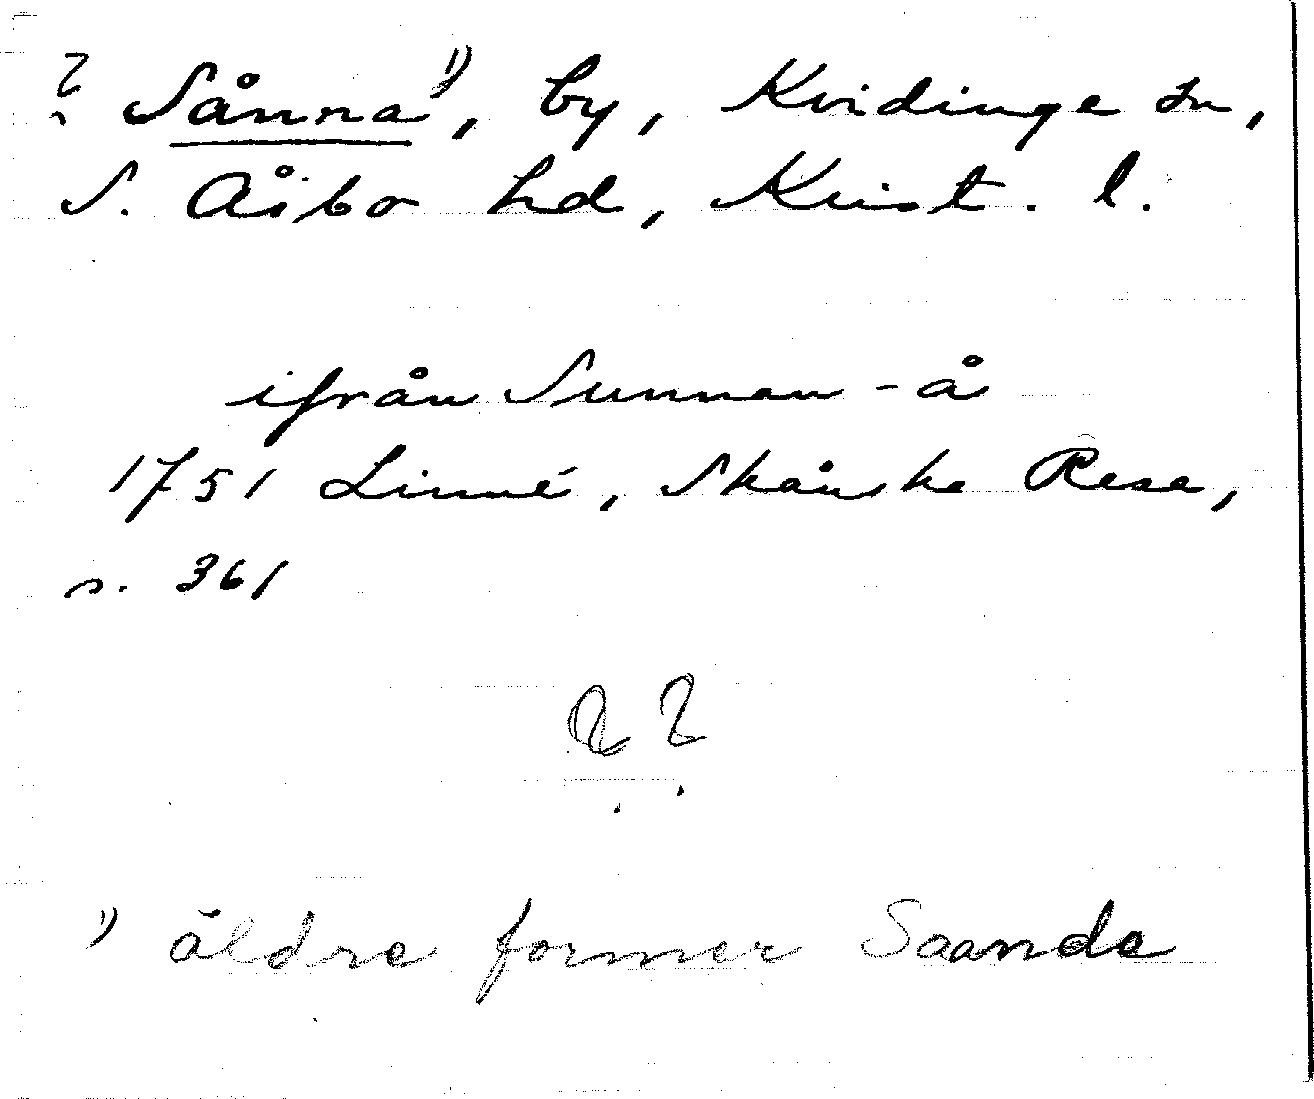 ? Sånna ¹⁾, by, Kvidinge sn,
S. Åsbo hd, Krist. l.
ifrån Sunnan-å
1751 Linné, Skånska Resa,
s. 361
? ?
¹⁾ äldre former Saande